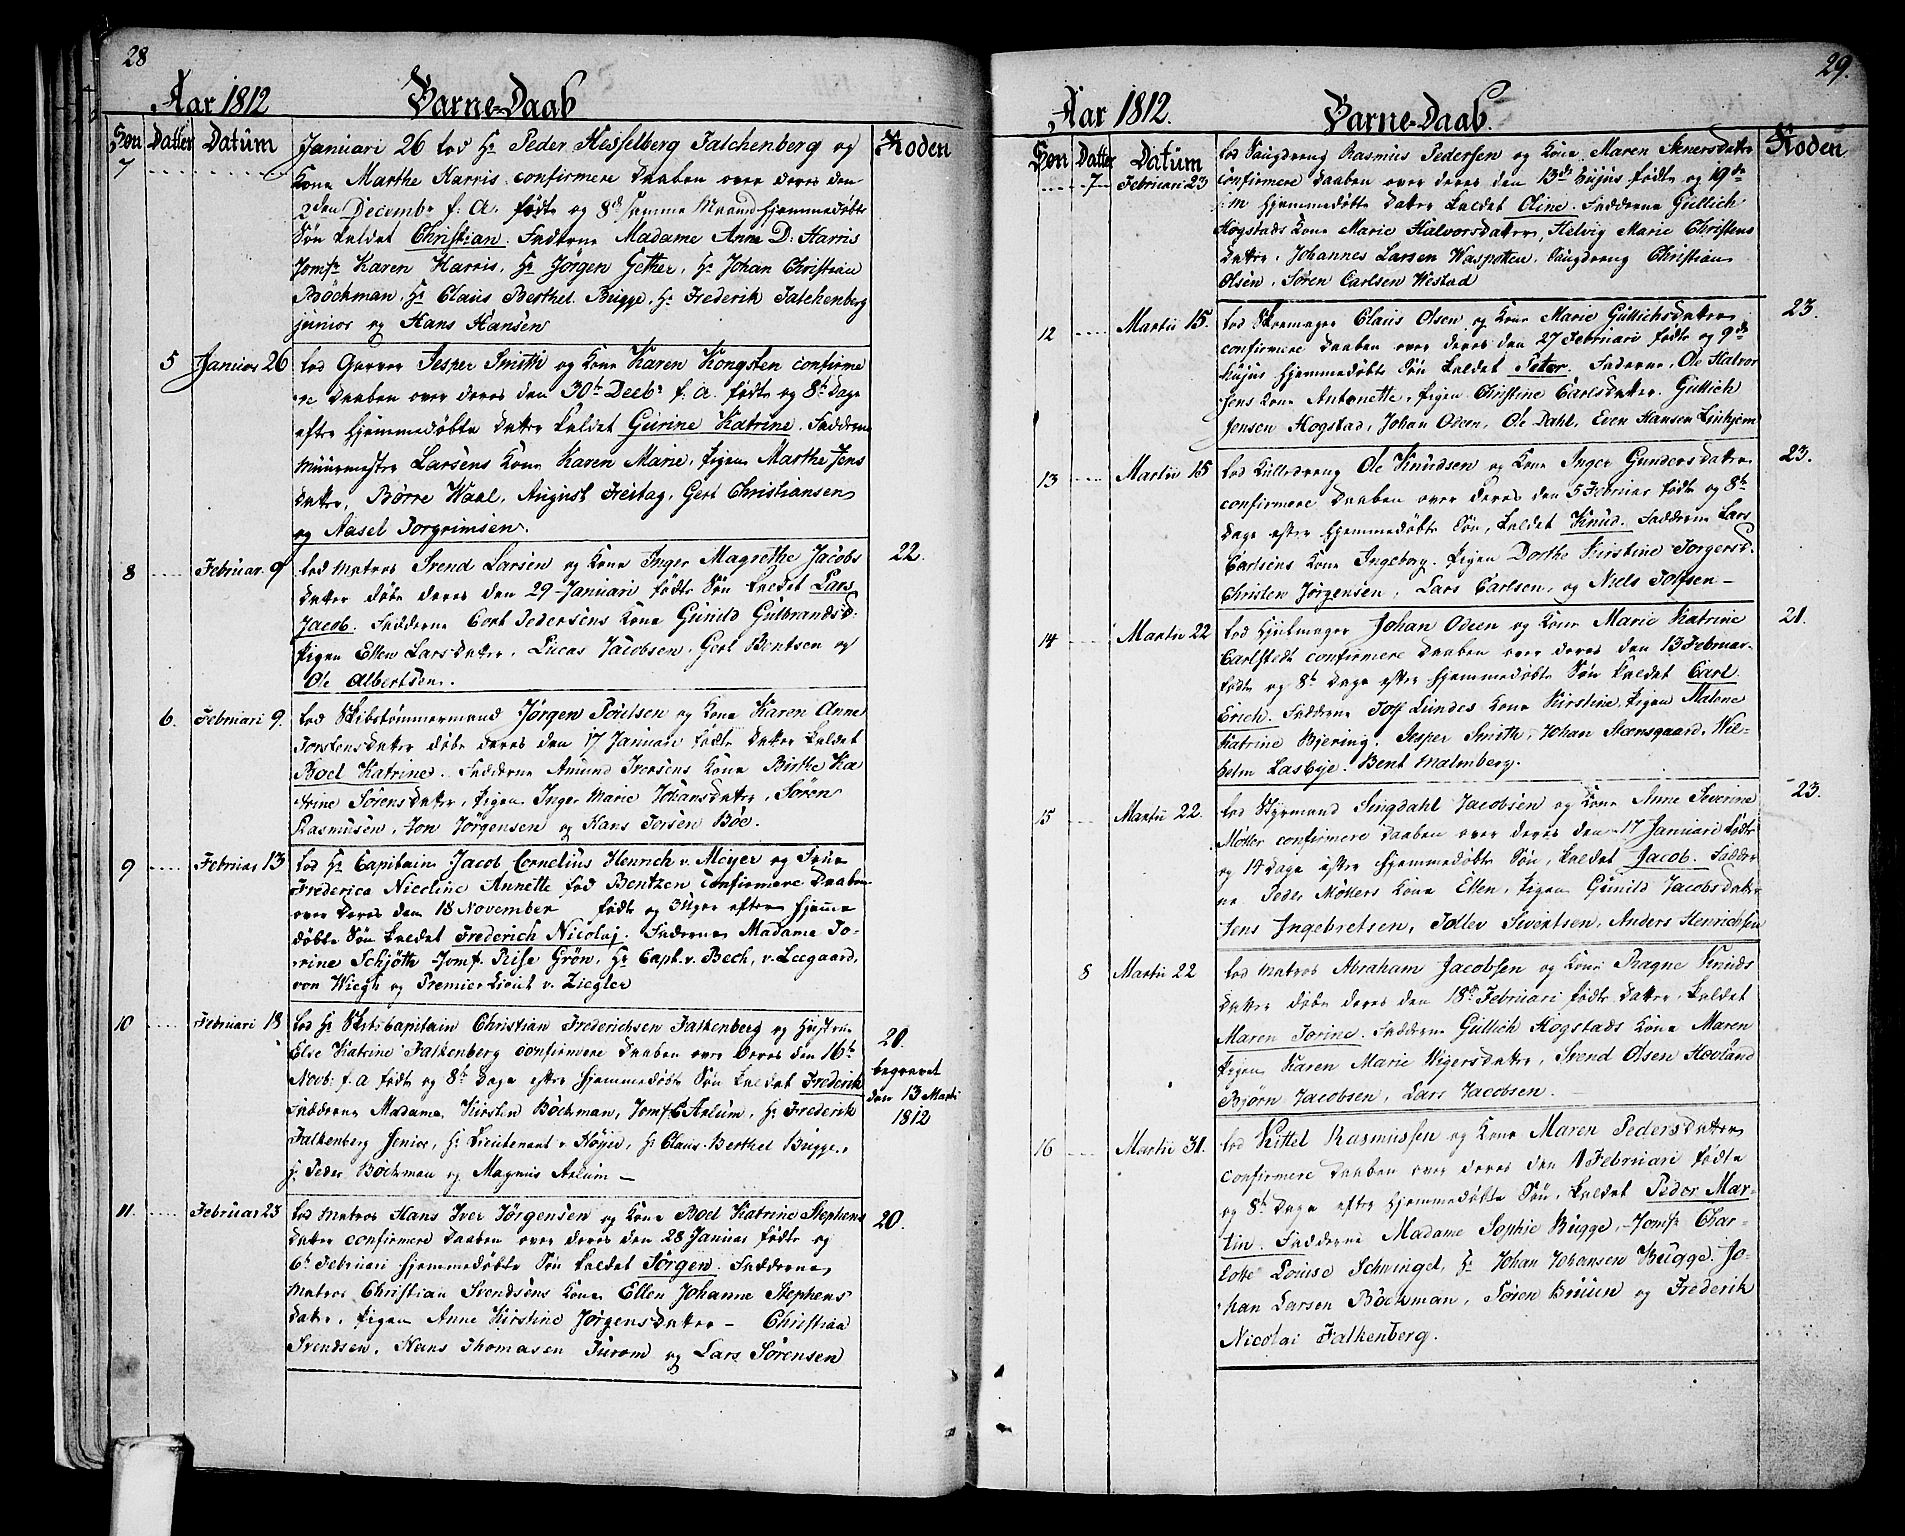 28
Aar 1812 Barne-Daab
Søn Datter Datum Roden
7 Januari 26 lod Hr Peder Hesselberg Falchenberg og
Kone Marthe Harris confirmere Daaben over deres den
2den Decembr f. A. fødte og 8de samme Maaned hjemmedøbte
Søn kaldet Christian. Fadderne Madame Anne D: Harris
Jomfr Karen Harris, Hr Jørgen Gether, Hr Johan Christian
Böckman, Hr Claus Berthel Bugge, Hr Frederik Falchenberg
junior og Hans Hansen
5 Januar 26 lod Garver Jesper Smith og Kone Karen Kongsten confirme
re Daaben over deres den 30te Decbr f. a. fødte og 8te Dage
efter hjemmedøbte Datter kaldet Gurine Katrine. Faddern
Muurmester Larsens Kone Karen Marie, Pigen Marthe Jens
datter, Børre Waal, August Freitag, Gert Christiansen
og Aasel Torgrimsen.
8 Februar 9 lod Matros Svend Larsen og Kone Inger Magrethe Jacobs 22.
datter døbe deres den 29 Januari fødte Søn kaldet Lars
Jacob. Fadderne Cort Pedersens Kone Gunild Gulbrandsd:
Pigen Ellen Larsdatter, Lucas Jacobsen, Gert Bentsen og
Ole Albertsen.
6. Februari 9. lod Skibstømmermand Jørgen Povelsen og Kone Karen Anne
Torstensdatter døbe deres den 17 Januari fødte Datter kaldet
Boel Katrine. Fadderne Amund Iversens Kone Birthe Ka
trine Sørensdatter, Pigen Inger Marie Johansdatter, Søren
Rasmusen, Jon Jørgensen og Hans Torsen Böe.
9 Februar 13 lod Hr Capitain Jacob Cornelius Henrich v. Meyer og Frue
Frederica Nicoline Annette fød Bentzen Confirmere Daaben
over deres den 18 November fødte og 3 Uger efter hjemme
døbte Søn kaldet Frederich Nicolaj. Fadderne Madame To-
rine Schjøth Jomf. Reise Grön, Hr Capt. v. Bech, v. Leegaard,
von Wiegh og Premier Lieut v. Ziegler
10 Februari 18 lod Hr Skibscapitain Christian Frederichsen Falkenberg og Hustrue 20.
Else Katrine Falkenberg confirmere Daaben over deres den 16te begravet
Novb: f. a fødte og 8te Dage efter hjemmedøbte Søn kaldet Frederik den 13 Marti
Fadderne Madame Kirsten Böckman, Jomf C Arlum, Hr Frederik 1812
Falkenberg Senior, Hr Lieutenant v Höyer, Hr Claus Berthel Bugge,
j. Peder Bockman og Magnus Arlum –
11. Februar 23 lod Matros Hans Iver Jørgensen og Kone Boel Katrine Stephens 20.
datter confirmere Daaben over deres den 28 Januar fødte og
6te Februari hjemmedøbte Søn kaldet Jørgen. Fadderne
Matros Christian Svendsens Kone Ellen Johanne Stephens
datter, Pigen Anne Kirstine Jørgensdatter – Christian
Svendsen, Hans Thomasen Furom og Lars Sørensen
29.
Aar 1812. Barne-Daab.
Søn Datter Datum Roden
7 Februari 23 lod Saugdreng Rasmus Pedersen og Kone Maren
confirmere Daaben over deres den 13de hujus fødte og 19de
s: m hjemmedøbte Datter kaldet Oline. Fadderne Gullich
Hogstads Kone Marie Halvorsdatter, Helvig Marie Christens
datter, Johannes Larsen Waspoten, Saugdreng Christian
Olsen, Søren Carlsen Westad
12 Martii 15. lod Skomager Claus Olsen og Kone Marie Gullichsdatter 23.
confirmere Daaben over deres den 27 Februari fødte og 9de
hujus hjemmedøbte Søn kaldet Peter. Fadderne, Ole Halvor
sens Kone Antonette, Pigen Christine Carlsdatter. Gullich
Jensen Hogstad, Johan Odeen, Ole Dahl, Even Hansen Linhjem
13 Martii 15 lod Kulldreng Ole Knudsen og Kone Inger Gundersdatter 23.
confirmere Daaben over deres den 5 Februar fødte og 8te
Dage efter hjemmedøbte Søn, kaldet Knud. Fadderne Lars
Carlsens Kone Ingeborg, Pigen Dorthe Kirstine Torgersd.
Christen Jørgensen, Lars Carlsen, og Niels Tolfsen –
14 Martii 22 lod Hjulmager Johan Odeen og Kone Marie Katrine 21.
Carlstedt confirmere Daaben over deres den 13 Februar
fødte og 8te Dage efter hjemmedøbte Søn kaldet Carl
Erich. Fadderne Tolf Lundes Kone Kirstine, Pigen Malene
Katrine Bjering. Jesper Smith, Johan Stensgaard, Wil-
helm Lasbye. Bent Malmberg.
15 Martii 22. lod Styrmand Singdahl Jacobsen og Kone Anne Severine 23.
Möller confirmere Daaben over deres den 17 Januari fødte
og 14 Dage efter hjemmedøbte Søn, kaldet Jacob. Fadder
ne Peder Möllers Kone Ellen, Pigen Gunild Jacobsdatter
Jens Ingebretsen, Tollev Siventsen, Anders Henrichsen
8 Martii 22 lod Matros Abraham Jacobsen og Kone Ragne Knuds
datter døbe deres den 18de Februari fødte Datter, kaldet
Maren Torine. Fadderne Gullich Hogstads Kone Maren
Pigen Karen Marie Wigersdatter, Svend Olsen Hovland
Bjørn Jacobsen, Lars Jacobsen.
16 Martii 31. lod Kittel Rasmussen og Kone Maren Pedersdatter
confirmere Daaben over deres den 1 Februari fødte
og 8te Dage efter hjemmedøbte Søn, kaldet Peder Mar-
tin. Fadderne Madame Sophie Bugge, Jomfr Char-
lotte Louise Schwingel, Hr Johan Johansen Bugge. Jo-
han Larsen Böckman, Søren Bruun og Frederik
Nicolai Falkenberg.